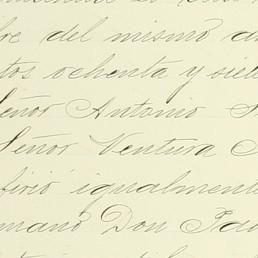 re del mismo a
tos ochenta y siete
Señor Antonio
Señor Ventura
firió igualmente
mano Don